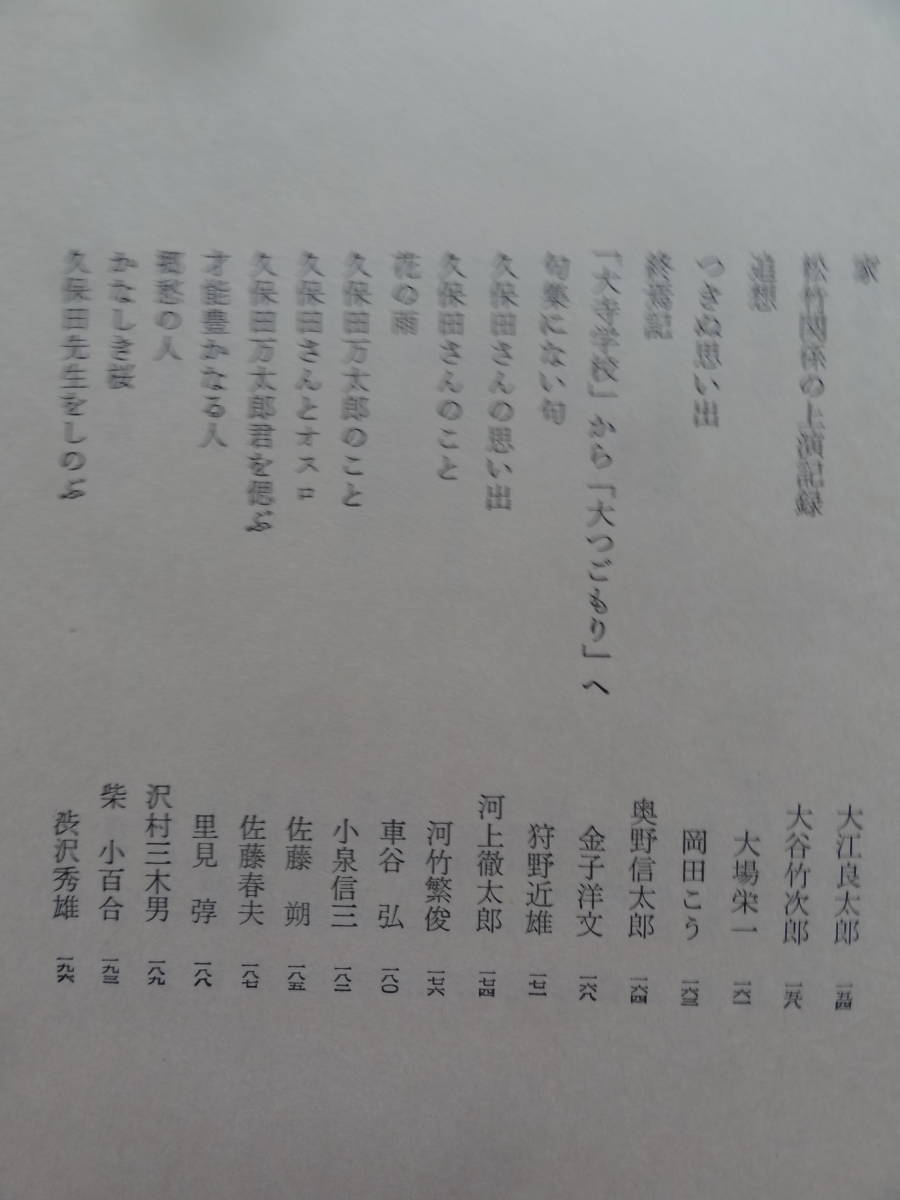 家　大江良太郎　一五四
松竹関係の上演記録　大谷竹次郎　一五八
追想　大場栄一　一六一
つきぬ思い出　岡田こう　一六三
終焉記　奥野信太郎　一六四
「大寺学校」から「大つごもり」へ　金子洋文　一六八
句集にない句　狩野近雄　一七一
久保田さんの思い出　河上徹太郎　一七四
久保田さんのこと　河竹繁俊　一七六
花の雨　車谷弘　一八〇
久保田万太郎のこと　小泉信三　一八二
久保田さんとオスロ　佐藤朔　一八五
久保田万太郎君を偲ぶ　佐藤春夫　一八七
才能豊かなる人　里見弴　一八八
郷愁の人　沢村三木男　一八九
かなしき桜　柴小百合　一九三
久保田先生をしのぶ　渋沢秀雄　一九六